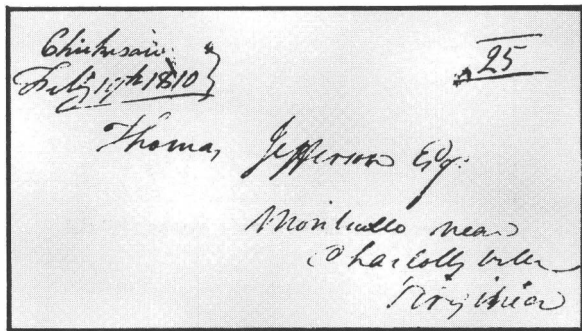 Chickesaw
Feby 19th 1810
25
Thomas Jefferson Esqr
Monticello near
Charlottsville
Virginia